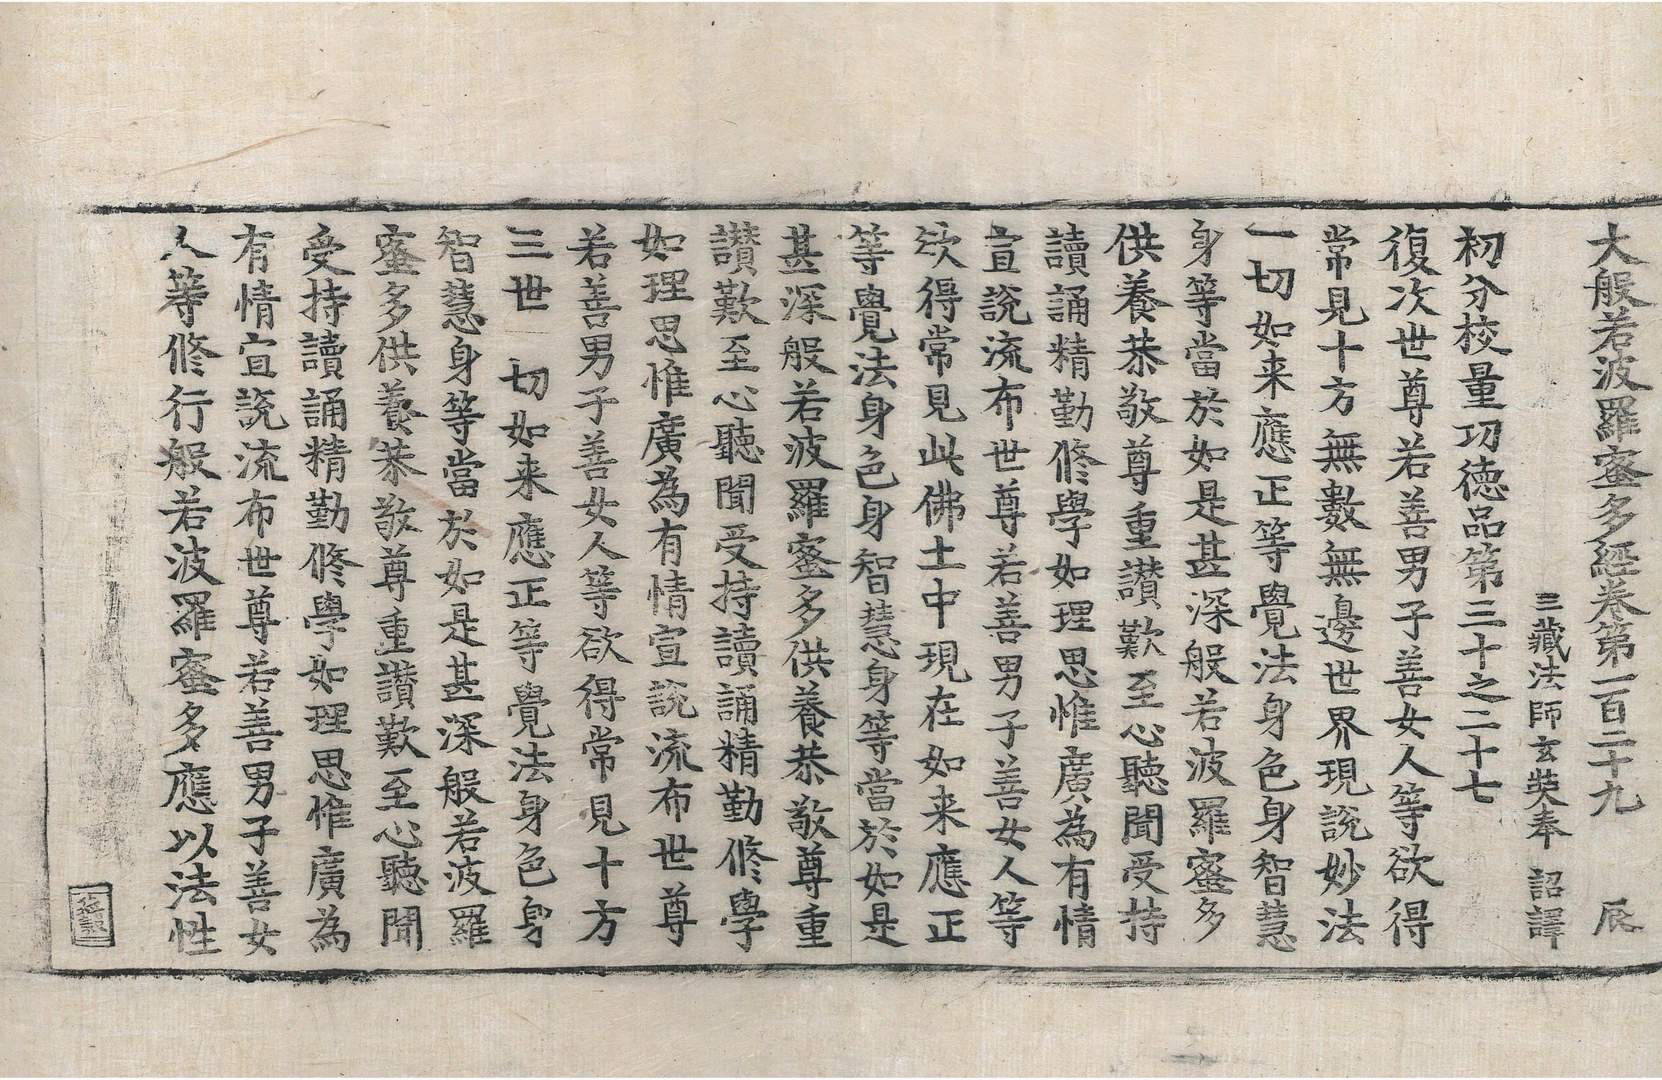 大般若波羅蜜多經卷第一百二十九 辰
三藏法師玄奘奉 詔譯
初分校量功德品第三十之二十七
復次世尊若善男子善女人等欲得
常見十方無數無邊世界現說妙法
一切如来應正等覺法身色身智慧
身等當於如是甚深般若波羅蜜多
供養恭敬尊重讚歎至心聽聞受持
讀誦精勤修學如理思惟廣為有情
宣說流布世尊若善男子善女人等
欲得常見此佛土中現在如来應正
等覺法身色身智慧身等當於如是
甚深般若波羅蜜多供養恭敬尊重
讚歎至心聽聞受持讀誦精勤修學
如理思惟廣為有情宣說流布世尊
若善男子善女人等欲得常見十方
三世 切如来應正等覺法身色身
智慧身等當於如是甚深般若波羅
蜜多供養恭敬尊重讚歎至心聽聞
受持讀誦精勤修學如理思惟廣為
有情宣說流布世尊若善男子善女
人等修行般若波羅蜜多應以法性